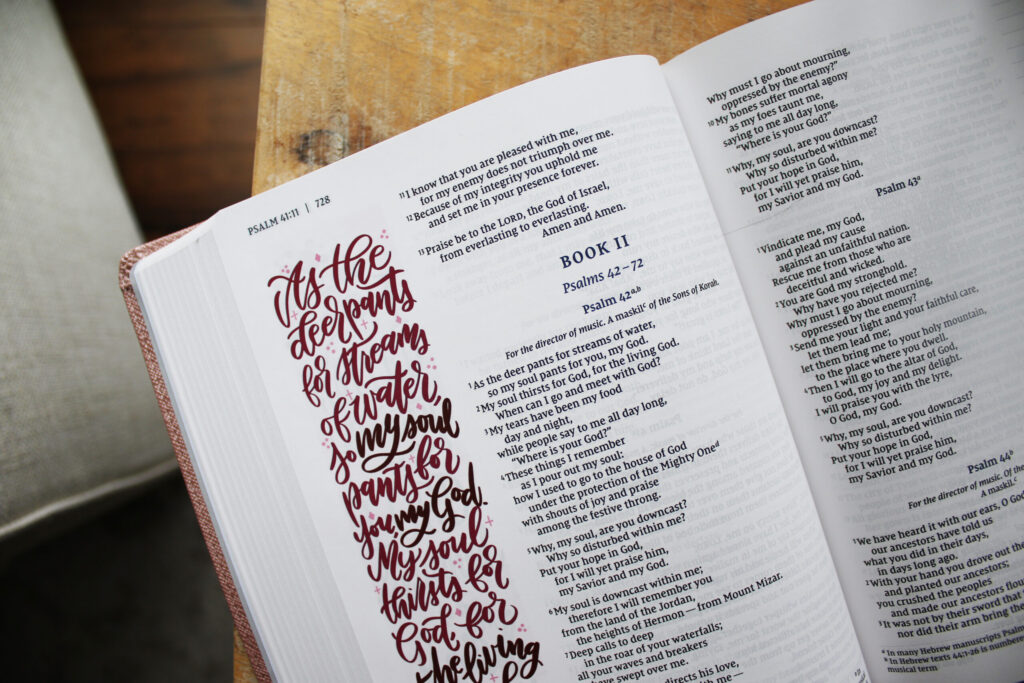 PSALM 41:11 | 728
As the
deer pants
for streams
of water,
so my soul
pants for
you, my God.
My soul
thirsts for
God, for
the living
11 I know that you are pleased with me,
for my enemy does not triumph over me.
12 Because of my integrity you uphold me
and set me in your presence forever.
13 Praise be to the LORD, the God of Israel,
from everlasting to everlasting.
Amen and Amen.
BOOK II
Psalms 42–72
Psalm 42a,b
For the director of music. A maskilc of the Sons of Korah.
1 As the deer pants for streams of water,
so my soul pants for you, my God.
2 My soul thirsts for God, for the living God.
When can I go and meet with God?
3 My tears have been my food
day and night,
while people say to me all day long,
"Where is your God?"
4 These things I remember
as I pour out my soul:
how I used to go to the house of God
under the protection of the Mighty Oned
with shouts of joy and praise
among the festive throng.
5 Why, my soul, are you downcast?
Why so disturbed within me?
Put your hope in God,
for I will yet praise him,
my Savior and my God.
6 My soul is downcast within me;
therefore I will remember you
from the land of the Jordan,
the heights of Hermon—from Mount Mizar.
7 Deep calls to deep
in the roar of your waterfalls;
all your waves and breakers
have swept over me.
directs his love,
with me—
Why must I go about mourning,
oppressed by the enemy?"
10 My bones suffer mortal agony
as my foes taunt me,
saying to me all day long,
"Where is your God?"
11 Why, my soul, are you downcast?
Why so disturbed within me?
Put your hope in God,
for I will yet praise him,
my Savior and my God.
Psalm 43a
1 Vindicate me, my God,
and plead my cause
against an unfaithful nation.
Rescue me from those who are
deceitful and wicked.
2 You are God my stronghold.
Why have you rejected me?
Why must I go about mourning,
oppressed by the enemy?
3 Send me your light and your faithful care,
let them lead me;
let them bring me to your holy mountain,
to the place where you dwell.
4 Then I will go to the altar of God,
to God, my joy and my delight.
I will praise you with the lyre,
O God, my God.
5 Why, my soul, are you downcast?
Why so disturbed within me?
Put your hope in God,
for I will yet praise him,
my Savior and my God.
Psalm 44b
For the director of music. Of the
A maskil.c
1 We have heard it with our ears, O God
our ancestors have told us
what you did in their days,
in days long ago.
2 With your hand you drove out the
and planted our ancestors;
you crushed the peoples
and made our ancestors flou
3 It was not by their sword that
nor did their arm bring the
a In many Hebrew manuscripts Psalms
b In Hebrew texts 44:1-26 is numbered
musical term